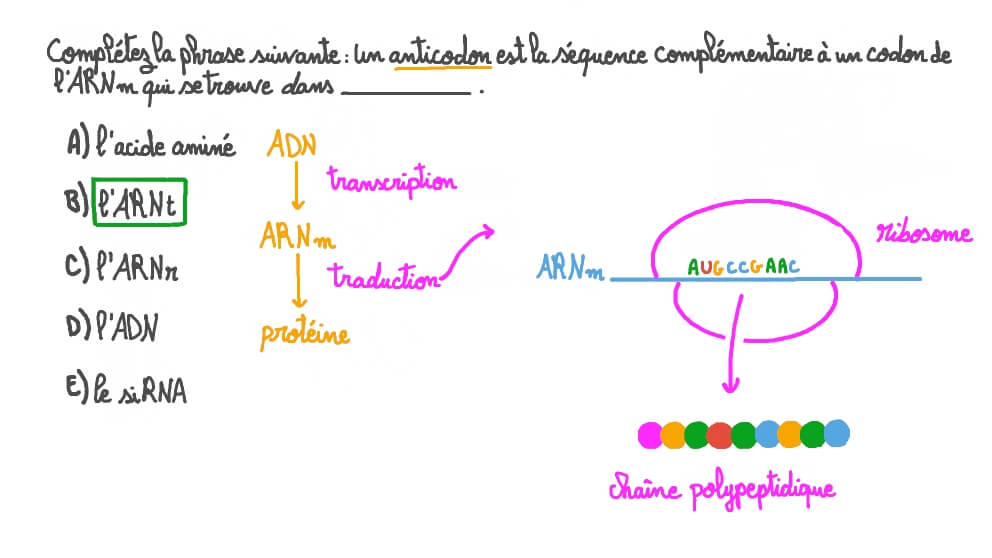 Complétez la phrase suivante : Un anticodon est la séquence complémentaire à un codon de
l'ARNm qui se trouve dans __________ .
A) l'acide aminé
B) l'ARNt
C) l'ARNr
D) l'ADN
E) le siRNA
ADN
transcription
ARNm
traduction
protéine
ribosome
ARNm
AUGCCGAAC
chaîne polypeptidique